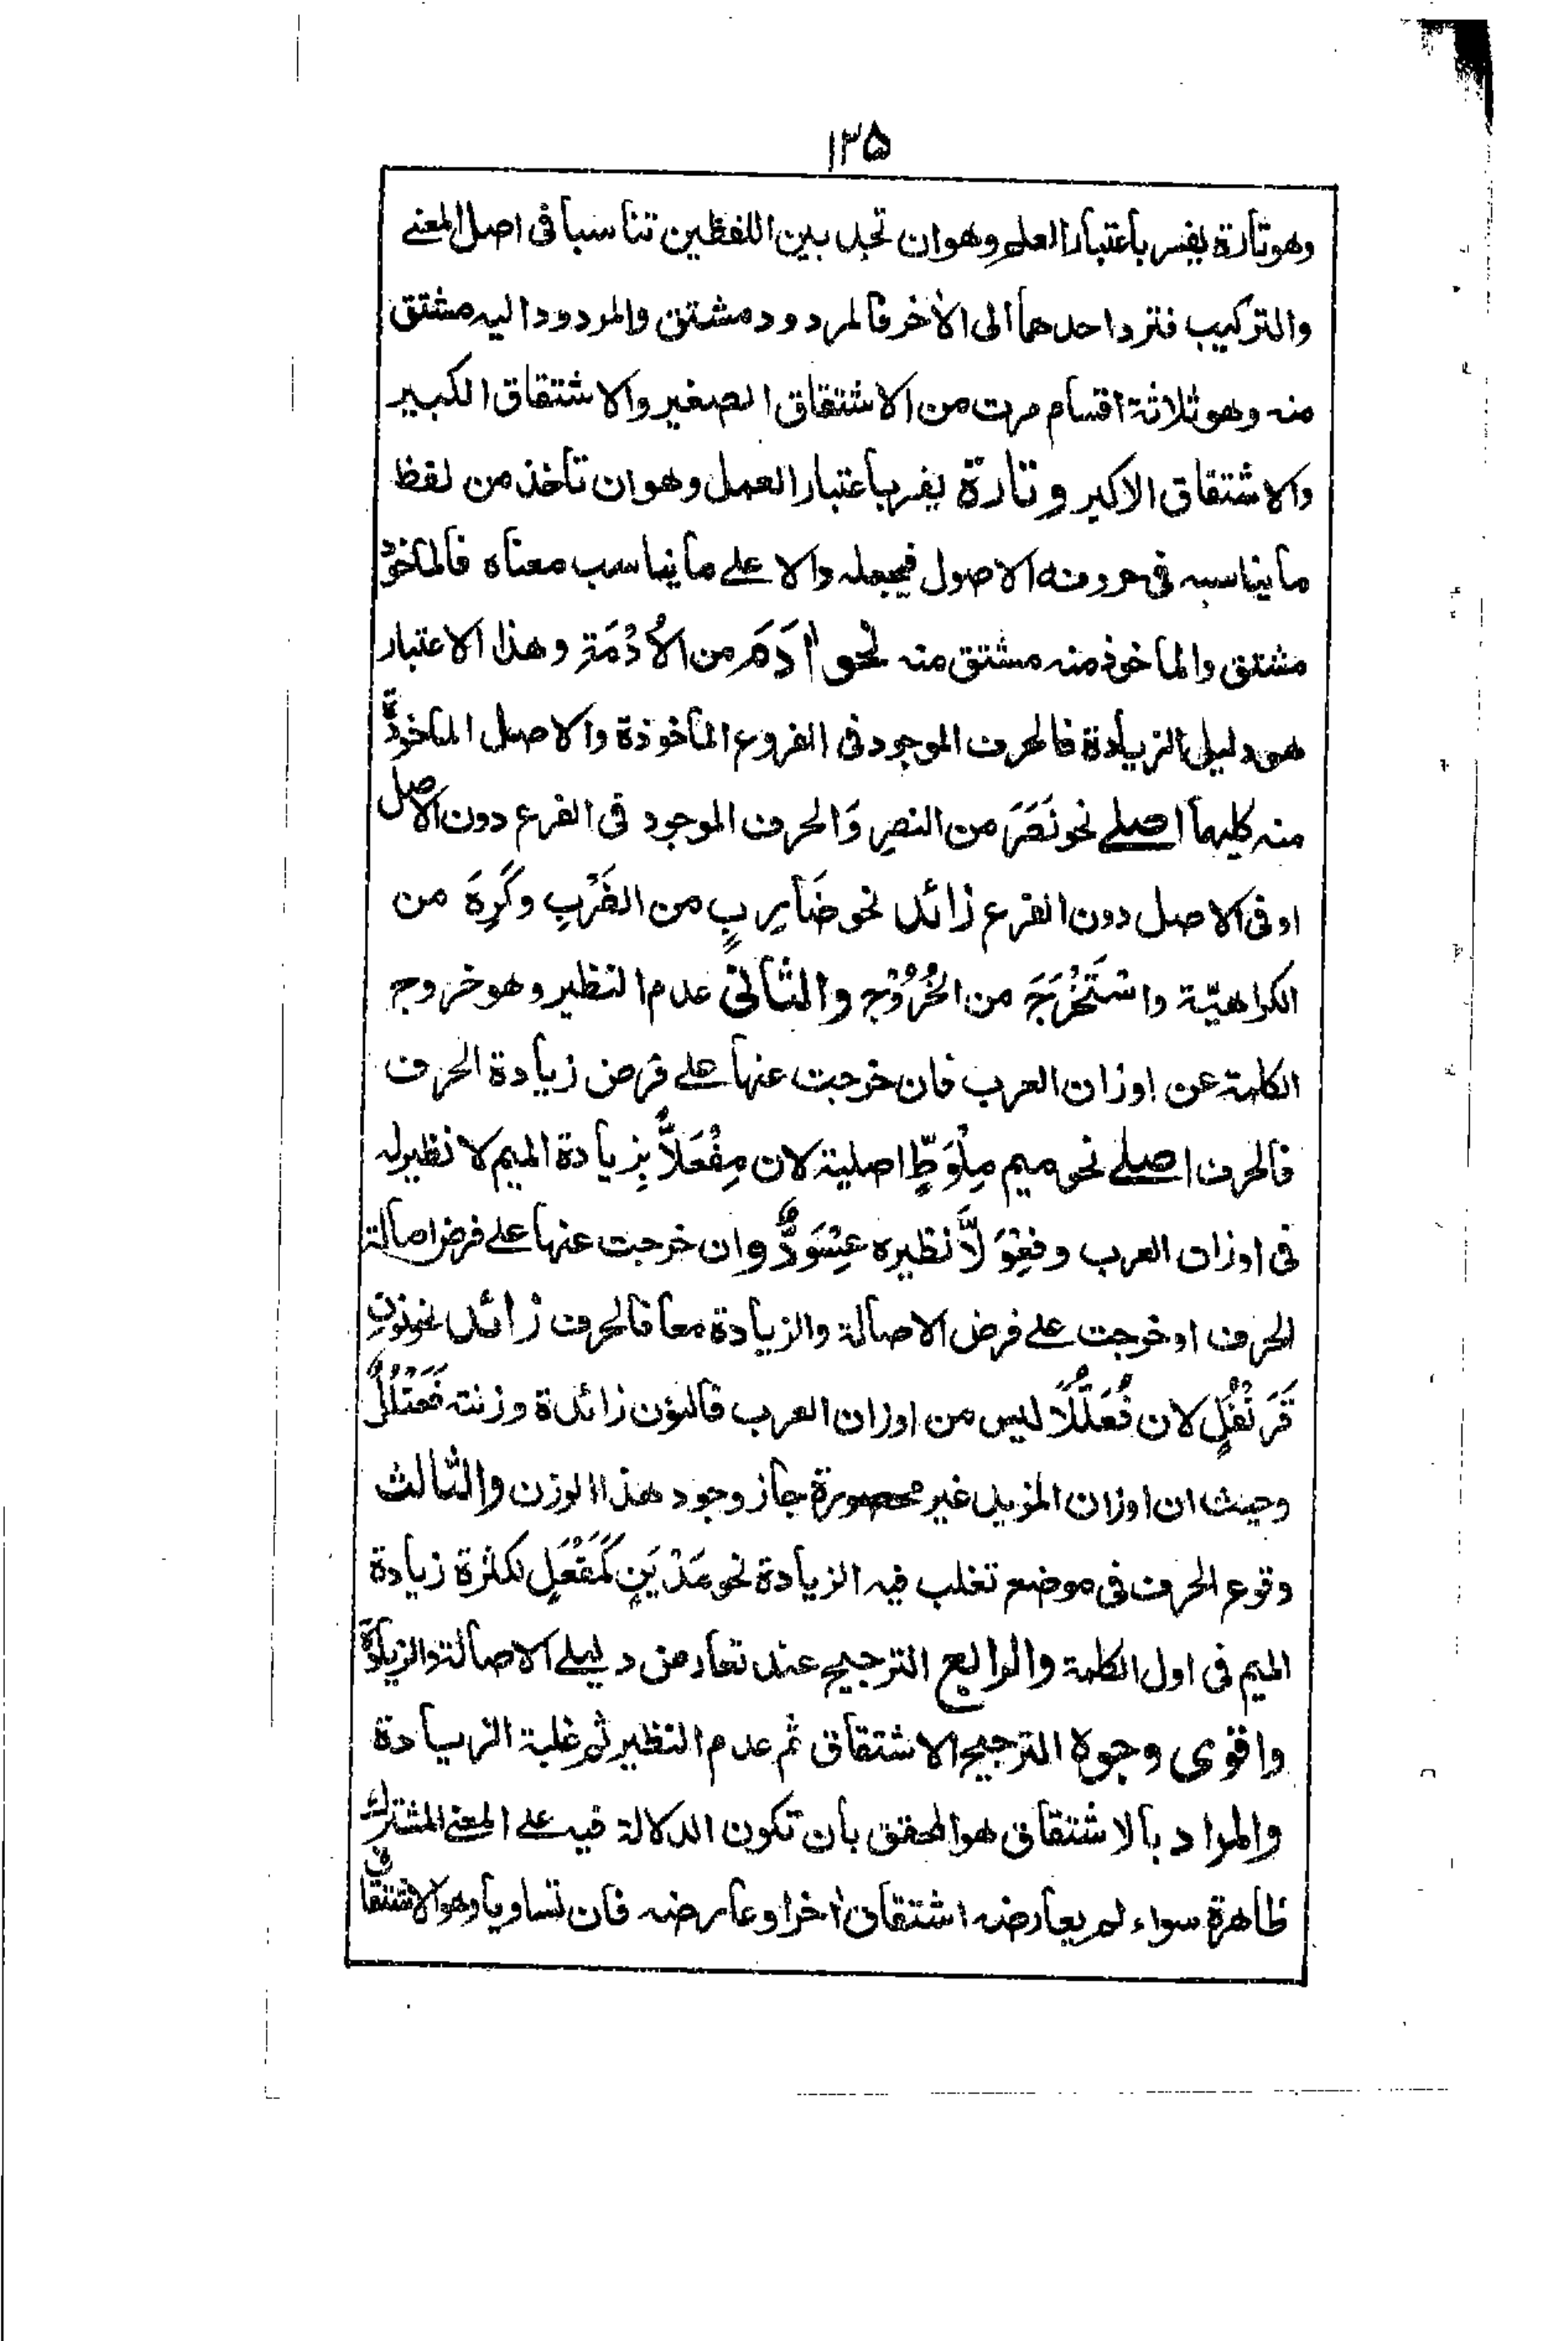 ۱۳۵
وهو تارة يفسر باعتبار العلم وهو ان تجد بين اللفظين تناسبا فی اصل المعنے
والتركيب فترد احدهما الی الأخر فالمردود مشتق والمردود اليه مشتق
منه وهو ثلاثة اقسام مرت من الاشتقاق الصغير والاشتقاق الكبير
والاشتقاق الاكبر وتارة يفسر باعتبار العمل وهو ان تأخذ من لفظ
ما يناسبه فی حروفه الاصول فيجعله دالا علے ما يناسب معناه فالماخوذ
مشتق والماخوذ منه مشتق منه نحو اٰدَمَ من الأُدْمَةِ وهذا الاعتبار
هو دليل الزيادة فالحرف الموجود فی الفروع الماخوذة والاصل الماخوذ
منه كليهما اصلے نحو نَصَرَ من النصرِ وَالحرف الموجود فی الفرع دون الاصل
او فی الاصل دون الفرع زائد نحو ضَارِبٍ من الضَرْبِ وكَرِهَ من
الكراهيّة واسْتَخْرَجَ من الخُرُوْجِ والثانی عدم النظير وهو خروج
الكلمة عن اوزان العرب فان خرجت عنها علے فرض زيادة الحرف
فالحرف اصلے نحو ميم مِلْوَطٍّ اصلية لان مِفْعَلاًّ بِزيادة الميم لا نظير له
فی اوزان العرب وفِعْوَلاًّ نظيره عِسْوَدٌّ وان خرجت عنها علے فرض اصالة
الحرف او خرجت علے فرض الاصالة والزيادة معا فالحرف زائد نحو نونِ
قَرَنْفُلٍ لان فَعَلُّلًا ليس من اوزان العرب فالنون زائدة وزنته فَعَنْلُلٌ
وحيث ان اوزان المزيد غير محصورة جاز وجود هذا الوزن والثالث
وقوع الحرف فی موضع تغلب فيه الزيادة نحو مَدْيَنٍ كَمَفْعَلٍ لكثرة زيادة
الميم فی اول الكلمة والرابع الترجيح عند تعارض دليلے الاصالة والزيادة
واقوی وجوه الترجيح الاشتقاق ثم عدم النظير ثم غلبة الزيادة
والمراد بالاشتقاق هو المحقق بان تكون الدلالة فيه علے المعنے المشترك
ظاهرة سواء لم يعارضه اشتقاق اٰخر او عارضه فان تساويا وهو الاشتقاق